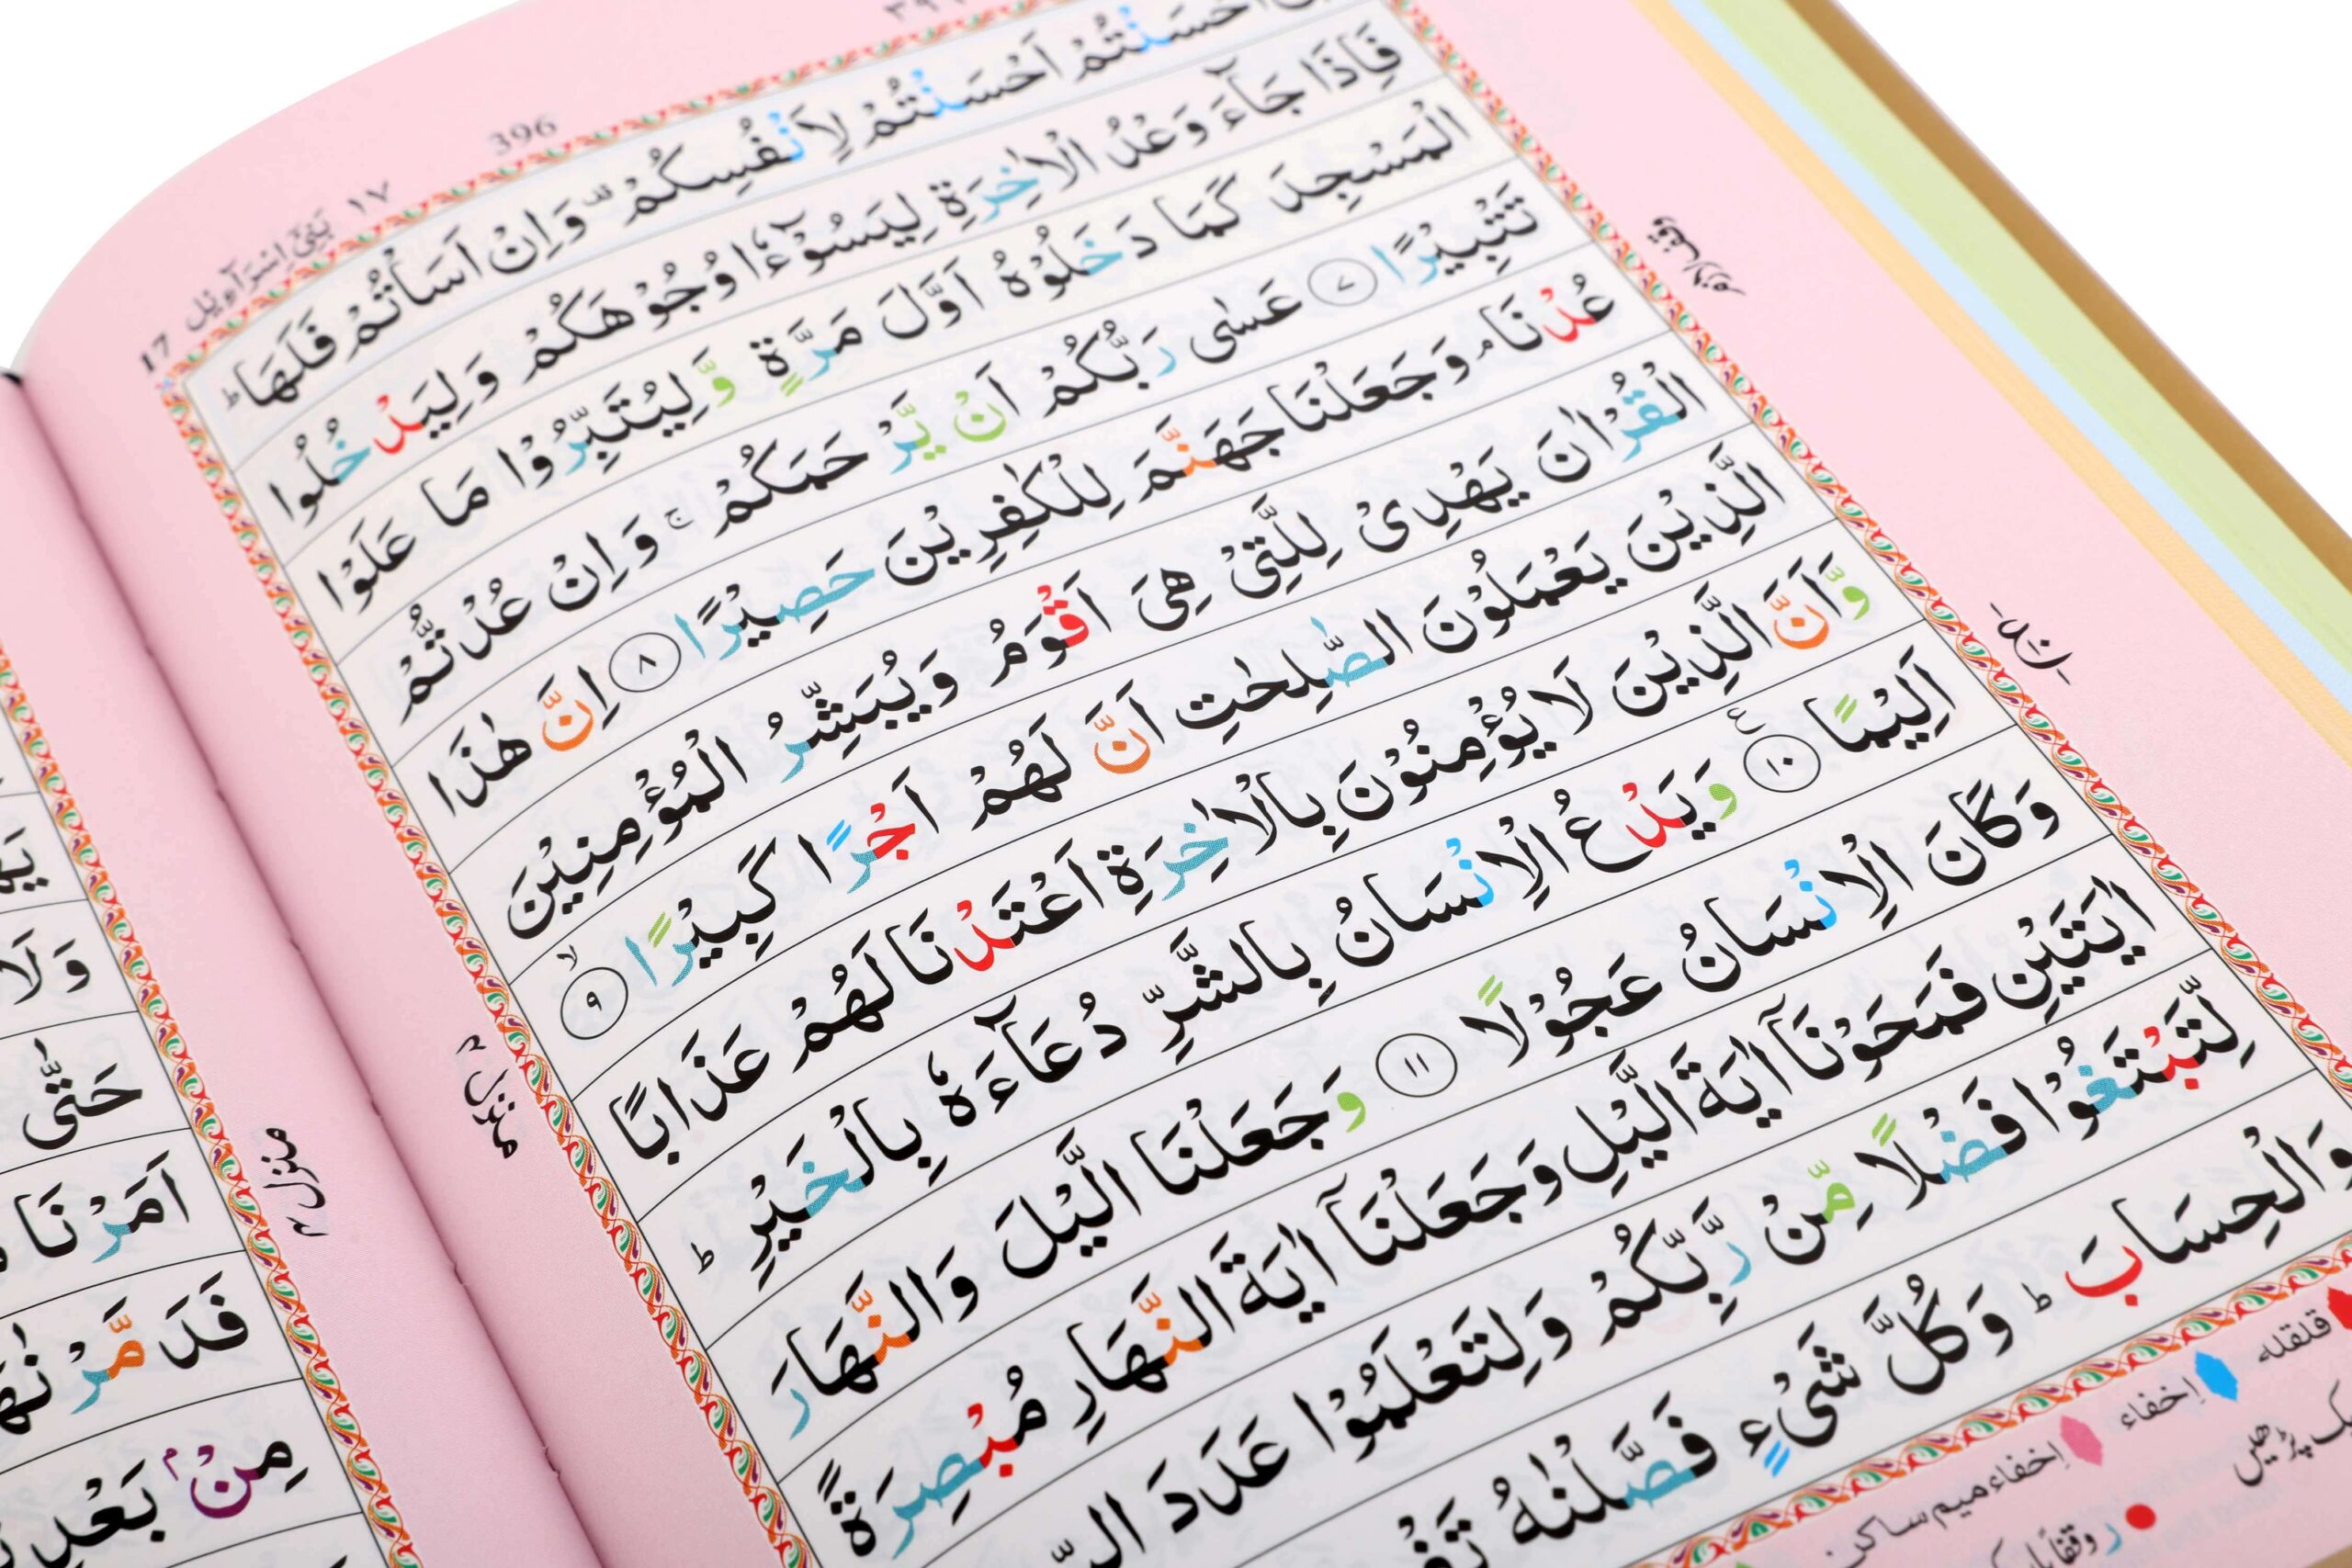 396
١٧ بَنِیْٓ اِسْرَآءِیْل 17
اَحْسَنْتُمْ اَحْسَنْتُمْ لِاَنْفُسِكُمْ ۫ وَاِنْ اَسَاْتُمْ فَلَهَا ؕ
فَاِذَا جَآءَ وَعْدُ الْاٰخِرَةِ لِیَسُوْٓءٗا وُجُوْهَكُمْ وَلِیَدْخُلُوا
الْمَسْجِدَ كَمَا دَخَلُوْهُ اَوَّلَ مَرَّةٍ وَّلِیُتَبِّرُوْا مَا عَلَوْا
تَتْبِیْرًا ٧ عَسٰی رَبُّكُمْ اَنْ یَّرْحَمَكُمْ ۚ وَاِنْ عُدْتُّمْ
عُدْنَا ۘ وَجَعَلْنَا جَهَنَّمَ لِلْكٰفِرِیْنَ حَصِیْرًا ٨ اِنَّ هٰذَا
الْقُرْاٰنَ یَهْدِیْ لِلَّتِیْ هِیَ اَقْوَمُ وَیُبَشِّرُ الْمُؤْمِنِیْنَ
الَّذِیْنَ یَعْمَلُوْنَ الصّٰلِحٰتِ اَنَّ لَهُمْ اَجْرًا كَبِیْرًا ۙ ٩
وَّاَنَّ الَّذِیْنَ لَا یُؤْمِنُوْنَ بِالْاٰخِرَةِ اَعْتَدْنَا لَهُمْ عَذَابًا
اَلِیْمًا ١٠ وَیَدْعُ الْاِنْسَانُ بِالشَّرِّ دُعَآءَهٗ بِالْخَیْرِ ؕ
وَكَانَ الْاِنْسَانُ عَجُوْلًا ١١ وَجَعَلْنَا الَّیْلَ وَالنَّهَارَ
اٰیَتَیْنِ فَمَحَوْنَآ اٰیَةَ الَّیْلِ وَجَعَلْنَآ اٰیَةَ النَّهَارِ مُبْصِرَةً
لِّتَبْتَغُوْا فَضْلًا مِّنْ رَّبِّكُمْ وَلِتَعْلَمُوْا عَدَدَ
وَالْحِسَابَ ؕ وَكُلَّ شَیْءٍ فَصَّلْنٰهُ
وقف لازم
منزل ۴
قلقله
اِخفاء
اِخفاء میم ساکن
منزل ۴
وَلَا
حَتّٰی
اَمَرْنَا
فَدَمَّرْنٰهَا
مِنْۢ بَعْدِ